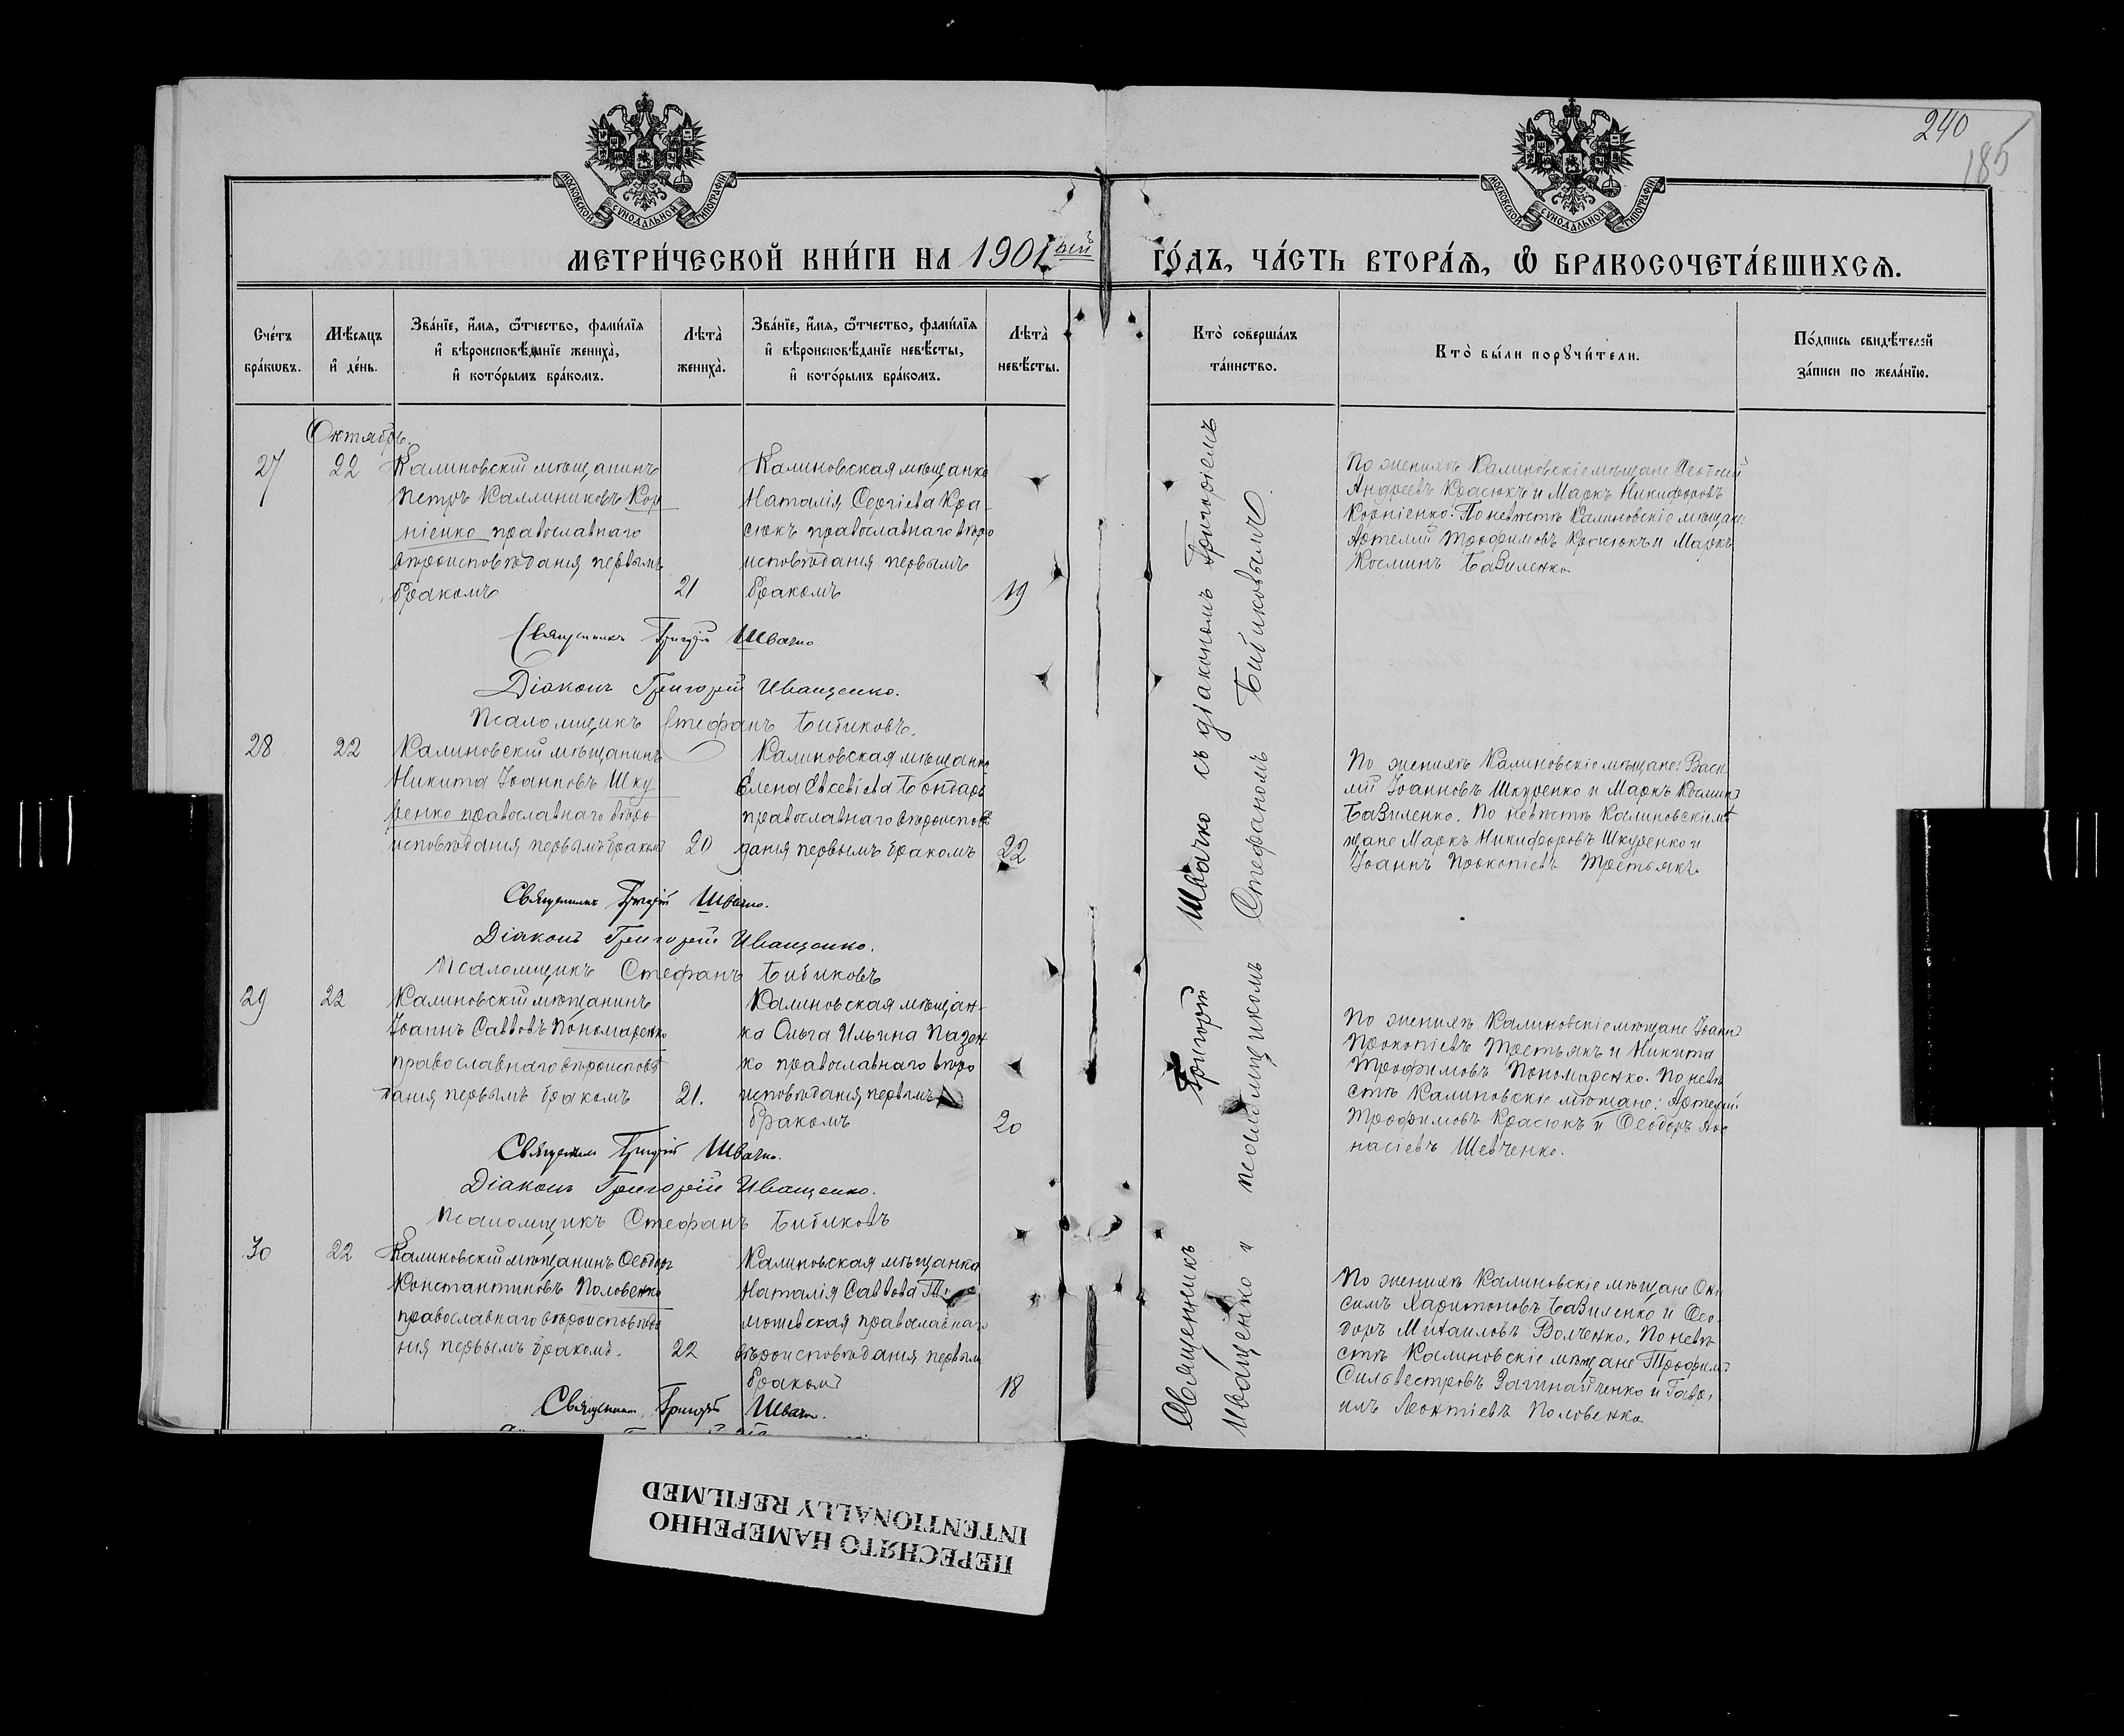 240
185
МОСКОВСКОЙ СУНОДАЛЬНОЙ ТИПОГРАФІИ.
МОСКОВСКОЙ СУНОДАЛЬНОЙ ТИПОГРАФІИ.
МЕТРИ́ЧЕСКОЙ КНИ́ГИ НА 1901ый ГО́ДЪ, ЧА́СТЬ ВТОРА́Ѧ, Ѽ БРАКОСОЧЕТА́ВШИХСѦ.
Сче́тъ
бра́кѡвъ.
Мѣ́сѧцъ
и҆ де́нь.
Зва́нїе, и҆́мѧ, ѻ҆́тчество, фами́лїѧ
и҆ вѣроисповѣ́данїе жениха̀,
и҆ кото́рымъ бра́комъ.
Лѣта̀
жениха̀.
Зва́нїе, и҆́мѧ, ѻ҆́тчество, фами́лїѧ
и҆ вѣроисповѣ́данїе невѣ́сты,
и҆ кото́рымъ бра́комъ.
Лѣта̀
невѣ́сты.
Кто̀ соверша́лъ
та́инство.
Кто̀ бы́ли порꙋчи́тели.
По́дпись свидѣ́телей
за́писи по жела́нїю.
Октябрь.
27
22
Калиновскій мѣщанинъ
Петръ Каллиниковъ Кор
ніенко православнаго
вѣроисповѣданія первымъ
бракомъ
21
Калиновская мѣщанка
Наталія Сергіева Кра-
сюкъ православнаго вѣро
исповѣданія первымъ
бракомъ
19
По женихѣ Калиновскіе мѣщане Ѳеодосій
Андреевъ Красюкъ и Маркъ Никифоровъ
Корніенко. По невѣстѣ Калиновскіе мѣщане:
Артемій Трофимовъ Красюкъ и Маркъ
Косминъ Базиленко
Священникъ Григорій Швачко
Діаконъ Григорій Иващенко.
Псаломщикъ Стефанъ Бибиковъ.
28
22
Калиновскій мѣщанинъ
Никита Іоанновъ Шку
ренко православнаго вѣро
исповѣданія первымъ бракомъ
20
Калиновская мѣщанка
Елена Евсевіева Бондарь
православнаго вѣроисповѣ
данія первымъ бракомъ
22
По женихѣ Калиновскіе мѣщане: Васи
лій Іоанновъ Шкуренко и Маркъ Косминъ
Базиленко. По невѣстѣ Калиновскіе мѣ
щане Маркъ Никифоровъ Шкуренко и
Іоаннъ Прокопіевъ Третьякъ.
Священникъ Григорій Швачко.
Діаконъ Григорій Иващенко.
Псаломщикъ Стефанъ Бибиковъ
29
22
Калиновскій мѣщанинъ
Іоаннъ Саввовъ Пономаренко
православнаго вѣроисповѣ
данія первымъ бракомъ
21.
Калиновская мѣщан-
ка Ольга Ильина Пазен
ко православнаго вѣро
исповѣданія первымъ
бракомъ
20
По женихѣ Калиновскіе мѣщане Іоаннъ
Прокопіевъ Третьякъ и Никита
Трофимовъ Пономаренко. По невѣ
стѣ Калиновскіе мѣщане: Артемій
Трофимовъ Красюкъ и Ѳеодоръ Аѳа
насіевъ Шевченко.
Священникъ Григорій Швачко.
Діаконъ Григорій Иващенко.
Псаломщикъ Стефанъ Бибиковъ
30
22
Калиновскій мѣщанинъ Ѳеодоръ
Константиновъ Половенко
православнаго вѣроисповѣда
нія первымъ бракомъ.
22
Калиновская мѣщанка
Наталія Саввова
православнаго
вѣроисповѣданія первымъ
бракомъ
18
По женихѣ Калиновскіе мѣщане Они
симъ Харитоновъ Базиленко и Ѳео-
доръ Михаиловъ Волченко. По невѣ
стѣ Калиновскіе мѣщане Трофимъ
Сильвестровъ и Гаврі
илъ Леонтіевъ Половенко
Священникъ Григорій Швачко.
Священникъ Григорій Швачко съ діакономъ Григоріемъ
Иващенко и псаломщикомъ Стефаномъ Бибиковымъ
ПЕРЕСНЯТО НАМЕРЕННО
INTENTIONALLY REFILMED